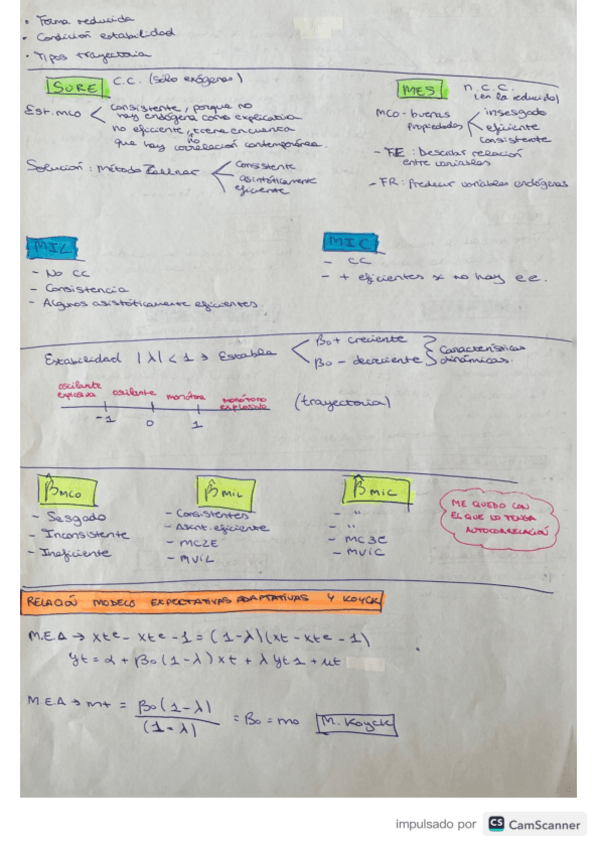 • Forma reducida
• Condición estabilidad
• Tipos trayectoria
SURE C.C. (sólo exógenas)
Est. MCO
consistente, porque no
hay endógena como explicativa
no eficiente, tiene en cuenta
que hay no correlación contemporánea.
Solución: Método Zellner
Consistente
asintóticamente
eficiente
MES n.c.c.
(en la reducida)
MCO - buenas
propiedades
insesgado
eficiente
consistente
- FE: Describir relación
entre variables
- FR: Predecir variables endógenas
MIL
- No CC
- Consistencia
- Algunos asistóticamente eficientes.
MIC
- CC
- + eficientes si no hay e.e.
Estabilidad |λ| < 1 → Estable
β0 + creciente
β0 - decreciente
Características
dinámicas.
oscilante
explosiva
oscilante
monótona
monótono
explosivo
-1 0 1
(trayectoria)
β̂MCO
- Sesgado
- Inconsistente
- Ineficiente
β̂MIL
- Consistentes
- Asint. eficiente
- MC2E
- MVIL
β̂MIC
- "
- "
- MC3E
- MVIC
ME QUEDO CON
EL QUE LO TENGA
AUTOCORRELACIÓN
RELACIÓN MODELO EXPECTATIVAS ADAPTATIVAS Y KOYCK
M.E.A → xt^e - xt^e-1 = (1-λ)(xt - xt^e-1)
yt = α + β0(1-λ)xt + λyt1 + ut
M.E.A → mt = β0(1-λ) / (1-λ) = β0 = m0 M. Koyck
impulsado por CS CamScanner